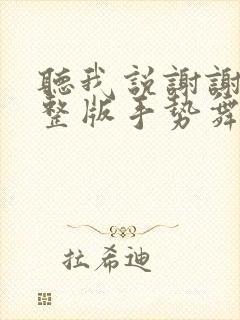 聽我説謝謝
整版手勢舞
拉希迪